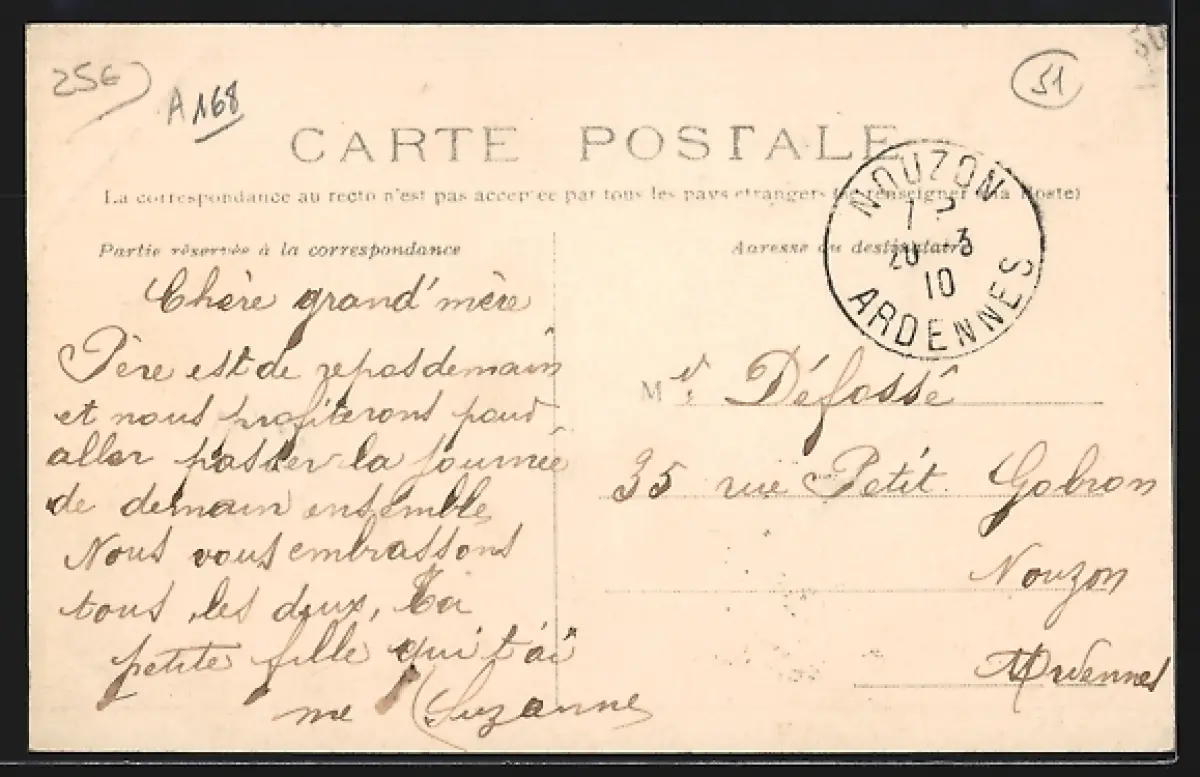 256
A 168
51
CARTE POSTALE
La correspondance au recto n'est pas acceptée par tous les pays étrangers (se renseigner à la Poste)
NOUZON
20 -3
10
ARDENNES
Partie réservée à la correspondance
Adresse du destinataire
Chère grand'mère
Père est de repos demain
et nous profiterons pour
aller passer la journée
de demain ensemble
Nous vous embrassons
tous les deux, Ta
petite fille qui t'ai
me Suzanne
M Défossé
35 rue Petit Gobron
Nouzon
Ardennes